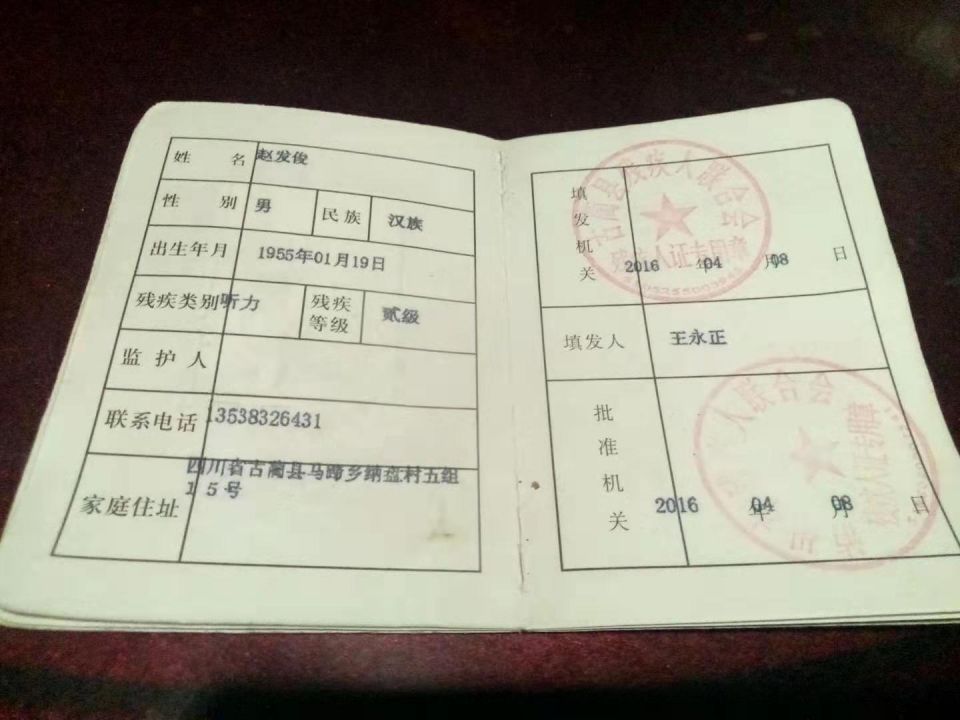 姓 名 赵发俊
性 别 男 民族 汉族
出生年月 1955年01月19日
残疾类别 听力 残疾等级 贰级
监 护 人
联系电话 13538326431
家庭住址 四川省古蔺县马蹄乡纳盘村五组
15号
填发机关
古蔺县残疾人联合会
残疾人证专用章
2016 年 04 月 08 日
填发人 王永正
批准机关
人联合会
2016 年 04 月 08 日